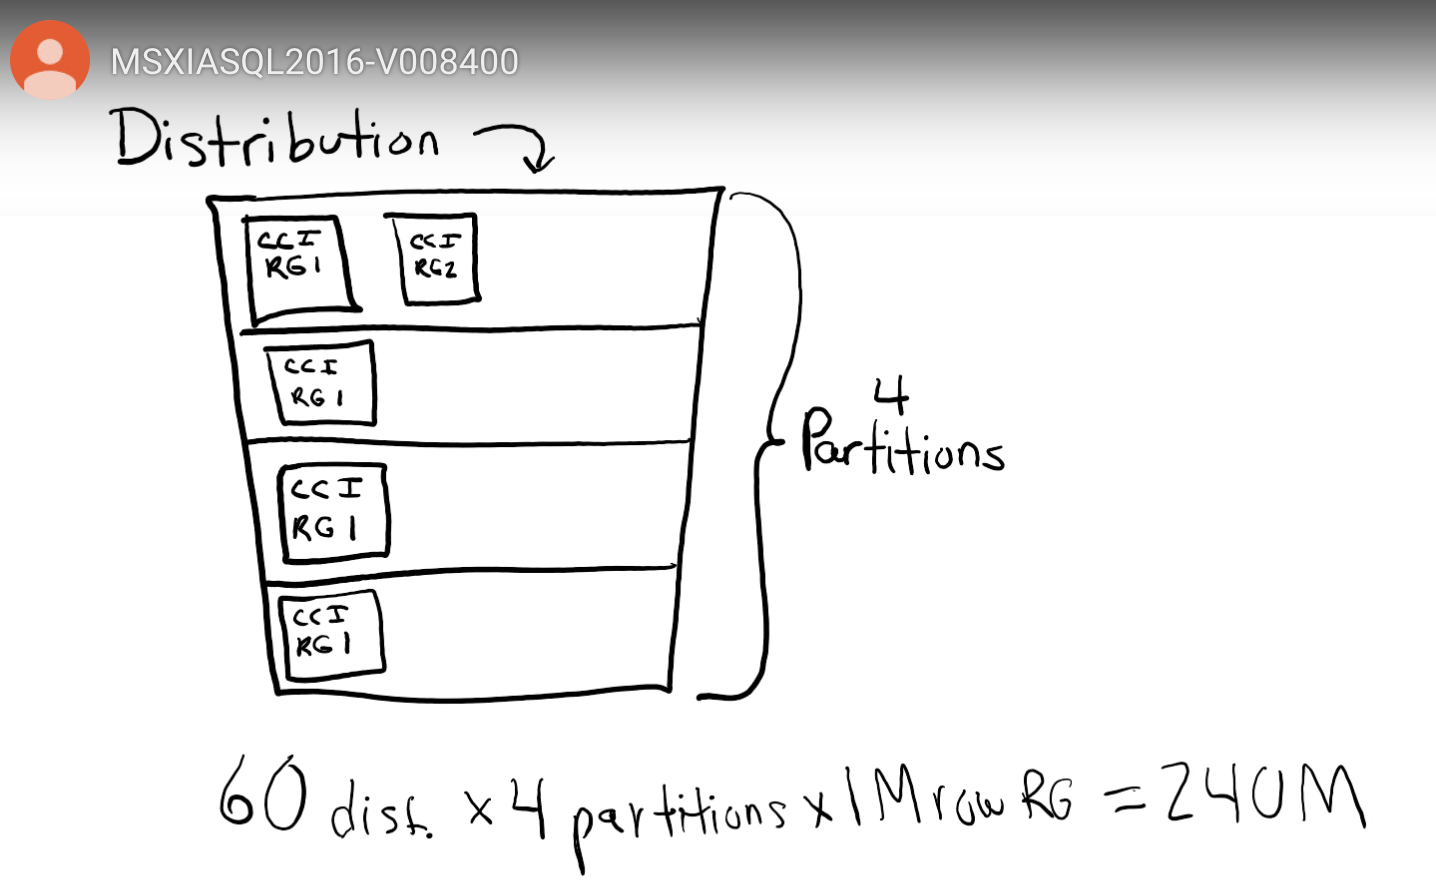 MSXIASQL2016-V008400
Distribution
CCI
RG1
CCI
RG2
CCI
RG1
4
Partitions
CCI
RG1
CCI
RG1
60 dist. x 4 partitions x 1M row RG = 240M